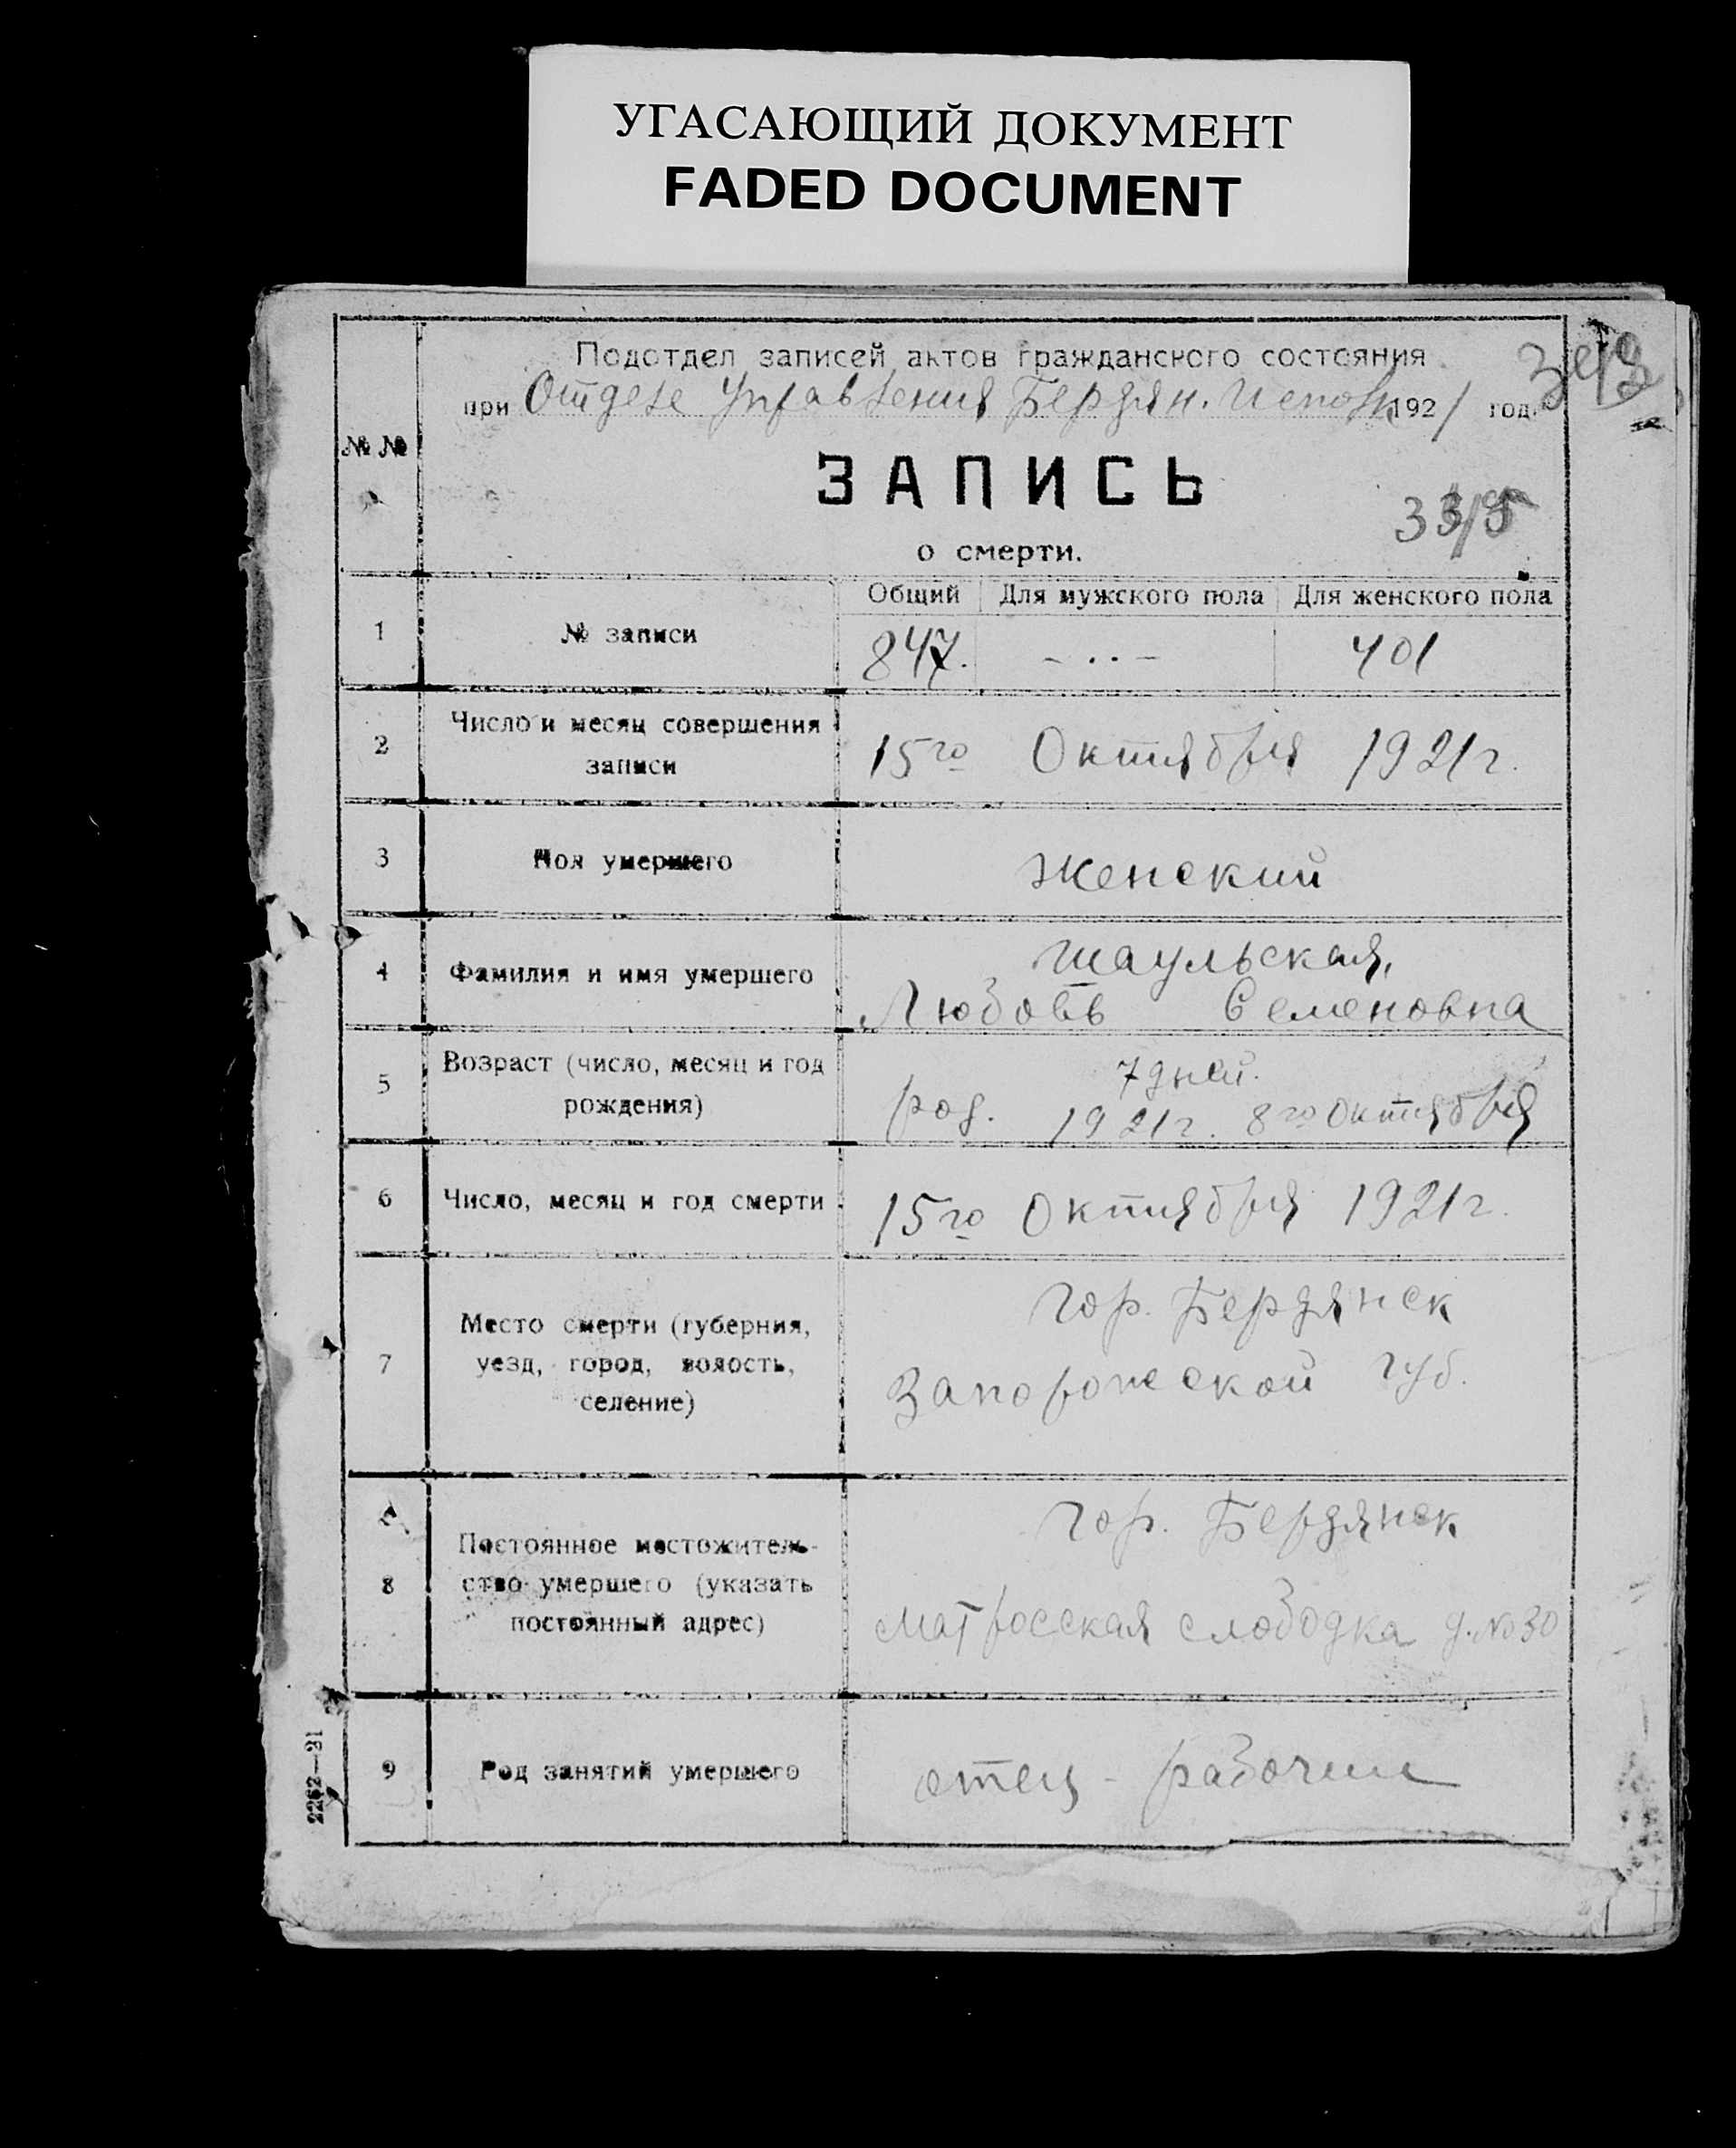 УГАСАЮЩИЙ ДОКУМЕНТ
FADED DOCUMENT
Подотдел записей актов гражданского состояния
при Отделе Управления Бердян. Исполк 1921 года
№ №
ЗАПИСЬ
о смерти.
Общий Для мужского пола Для женского пола
1 № записи 847. - .. - 401
2 Число и месяц совершения
записи 15го Октября 1921 г.
3 Пол умершего женский
4 Фамилия и имя умершего Шаульская,
Любовь Семеновна
5 Возраст (число, месяц и год
рождения) 7 дней.
род. 1921 г. 8го Октября
6 Число, месяц и год смерти 15го Октября 1921 г.
7 Место смерти (губерния,
уезд, город, волость,
селение) гор. Бердянск
Запорожской губ.
8 Постоянное местожитель-
ство умершего (указать
постоянный адрес) гор. Бердянск
Матросская слободка д. № 30
9 Род занятий умершего отец - рабочий
2262—21